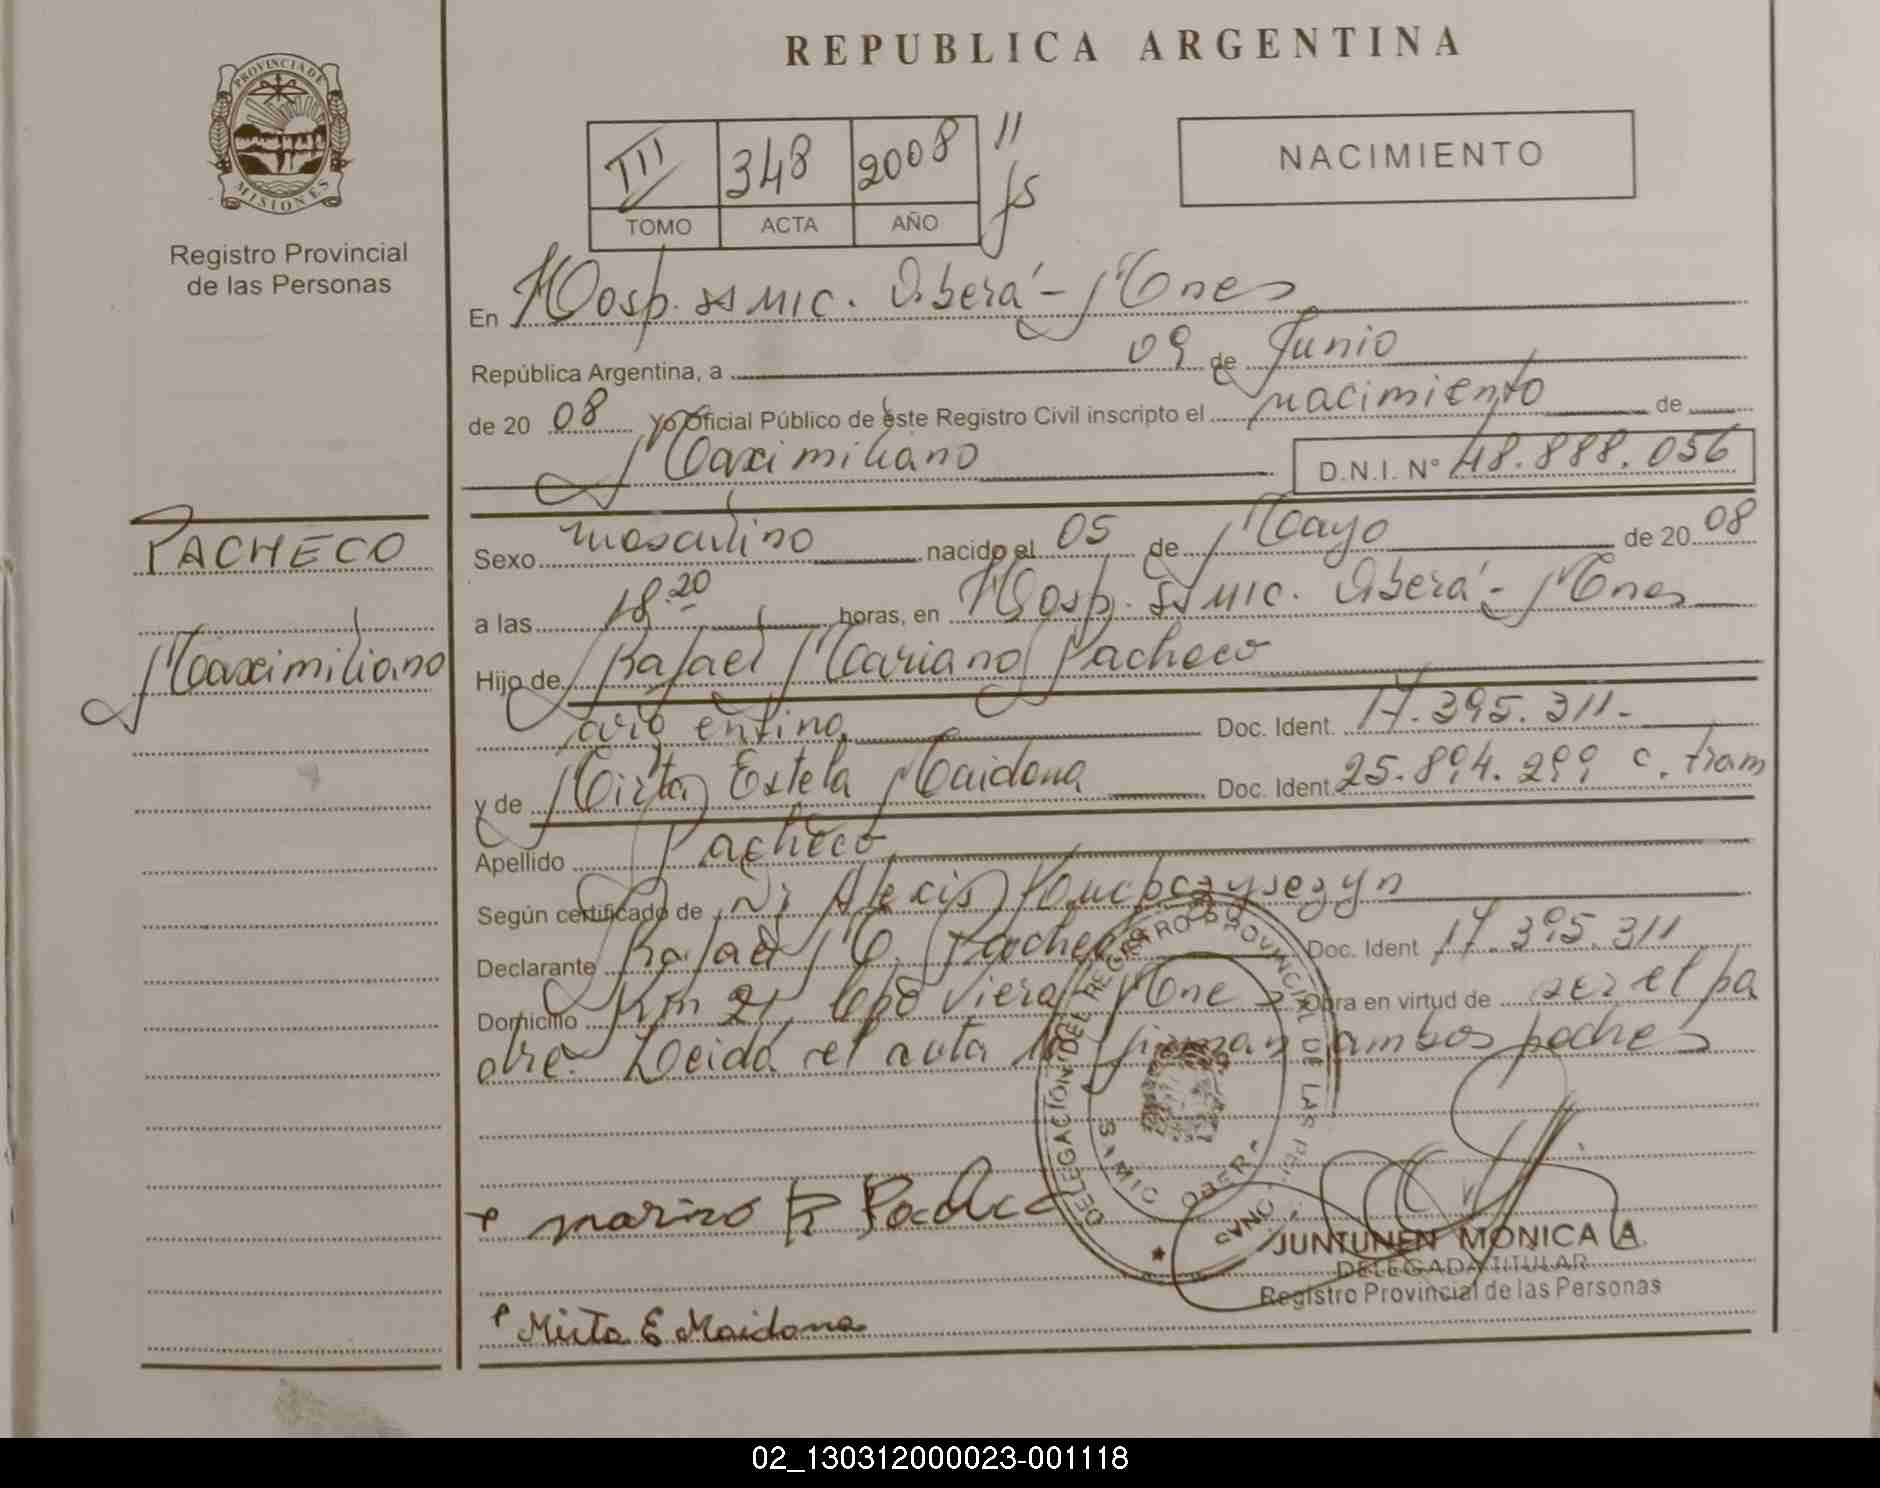 REPUBLICA ARGENTINA
PROVINCIA DE
MISIONES
Registro Provincial
de las Personas
III 348 2008 11
TOMO ACTA AÑO fs
NACIMIENTO
En Hosp. SS MIC. Oberá - Mnes
República Argentina, a 09 de Junio
de 2008 yo Oficial Público de este Registro Civil inscripto el nacimiento de
Maximiliano D.N.I. N° 48.888.056
PACHECO
Maximiliano
Sexo masculino nacido el 05 de Mayo de 2008
a las 18.20 horas, en Hosp. SS MIC. Oberá - Mnes
Hijo de Rafael Mariano Pacheco
argentino Doc. Ident. 17.395.311.-
y de Mirta Estela Maidana Doc. Ident. 25.894.299 c. tram
Apellido Pacheco
Según certificado de Alexis
Declarante Rafael M. Pacheco Doc. Ident 17.395.311
Domicilio Km 21 Cpo Viera Mnes Obra en virtud de ser el pa
dre. Leida el acta la firman ambos padres
DELEGACION DEL REGISTRO PROVINCIAL DE LAS
OBERA
mariano R Pacheco
JUNTUNEN MONICA A.
DELEGADA TITULAR
Registro Provincial de las Personas
Mirta E Maidana
02_130312000023-001118